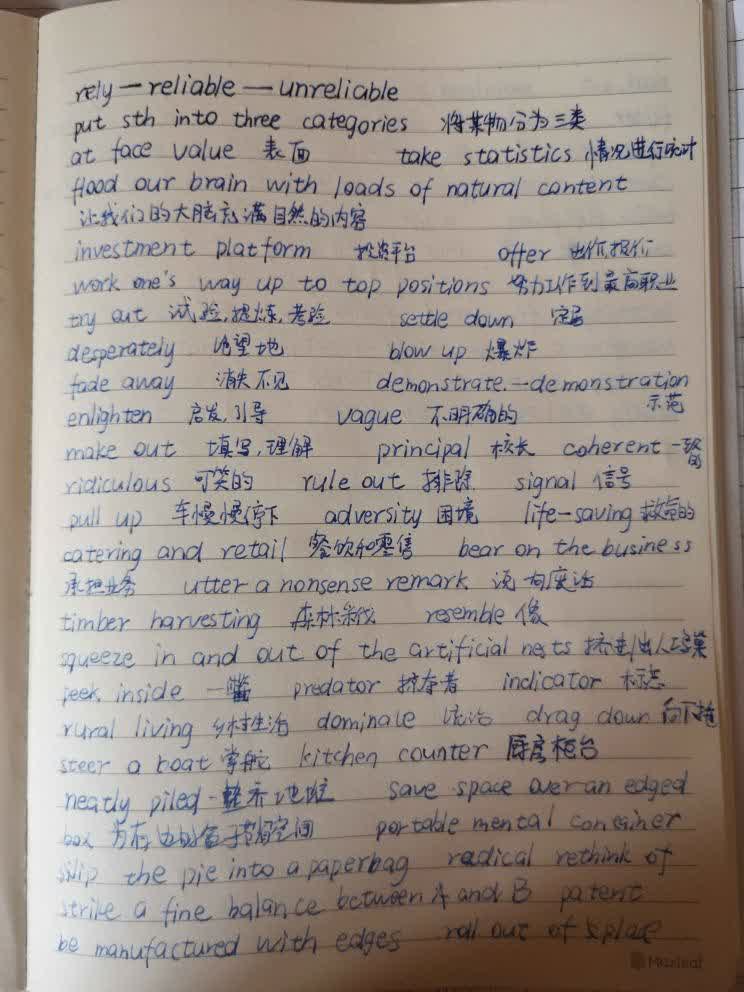 rely — reliable — unreliable
put sth into three categories 将某物分为三类
at face value 表面 take statistics 情况进行统计
flood our brain with loads of natural content
让我们的大脑充满自然的内容
investment platform 投资平台 offer 出价,报价
work one's way up to top positions 努力工作到最高职业
try out 试验,提炼,考验 settle down 定居
desperately 绝望地 blow up 爆炸
fade away 消失不见 demonstrate — demonstration
示范
enlighten 启发,引导 vague 不明确的
make out 填写,理解 principal 校长 coherent 一致的
ridiculous 可笑的 rule out 排除 signal 信号
pull up 车慢慢停下 adversity 困境 life-saving 救命的
catering and retail 餐饮和零售 bear on the business
承担业务 utter a nonsense remark 说句废话
timber harvesting 森林采伐 resemble 像
squeeze in and out of the artificial nests 挤进/出人工鸟巢
peek inside 一瞥 predator 掠夺者 indicator 标志
rural living 乡村生活 dominate 统治 drag down 向下拖
steer a boat 掌舵 kitchen counter 厨房柜台
neatly piled 整齐地堆 save space over an edged
box 为有边的盒子节省空间 portable mental container
slip the pie into a paperbag radical rethink of
strike a fine balance between A and B patent
be manufactured with edges roll out of place